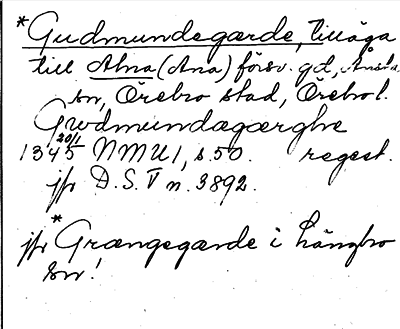 *Gudmundegarde, tilläga
till Alna (Ana) försv. gd, Ånsta
sn, Örebro stad, Örebro l.
Gudmundagærghe
1345 20/1 NMU 1, s. 50. regest.
jfr D. S. V n. 3892.
jfr *Grængegærde i Längbro
sn!